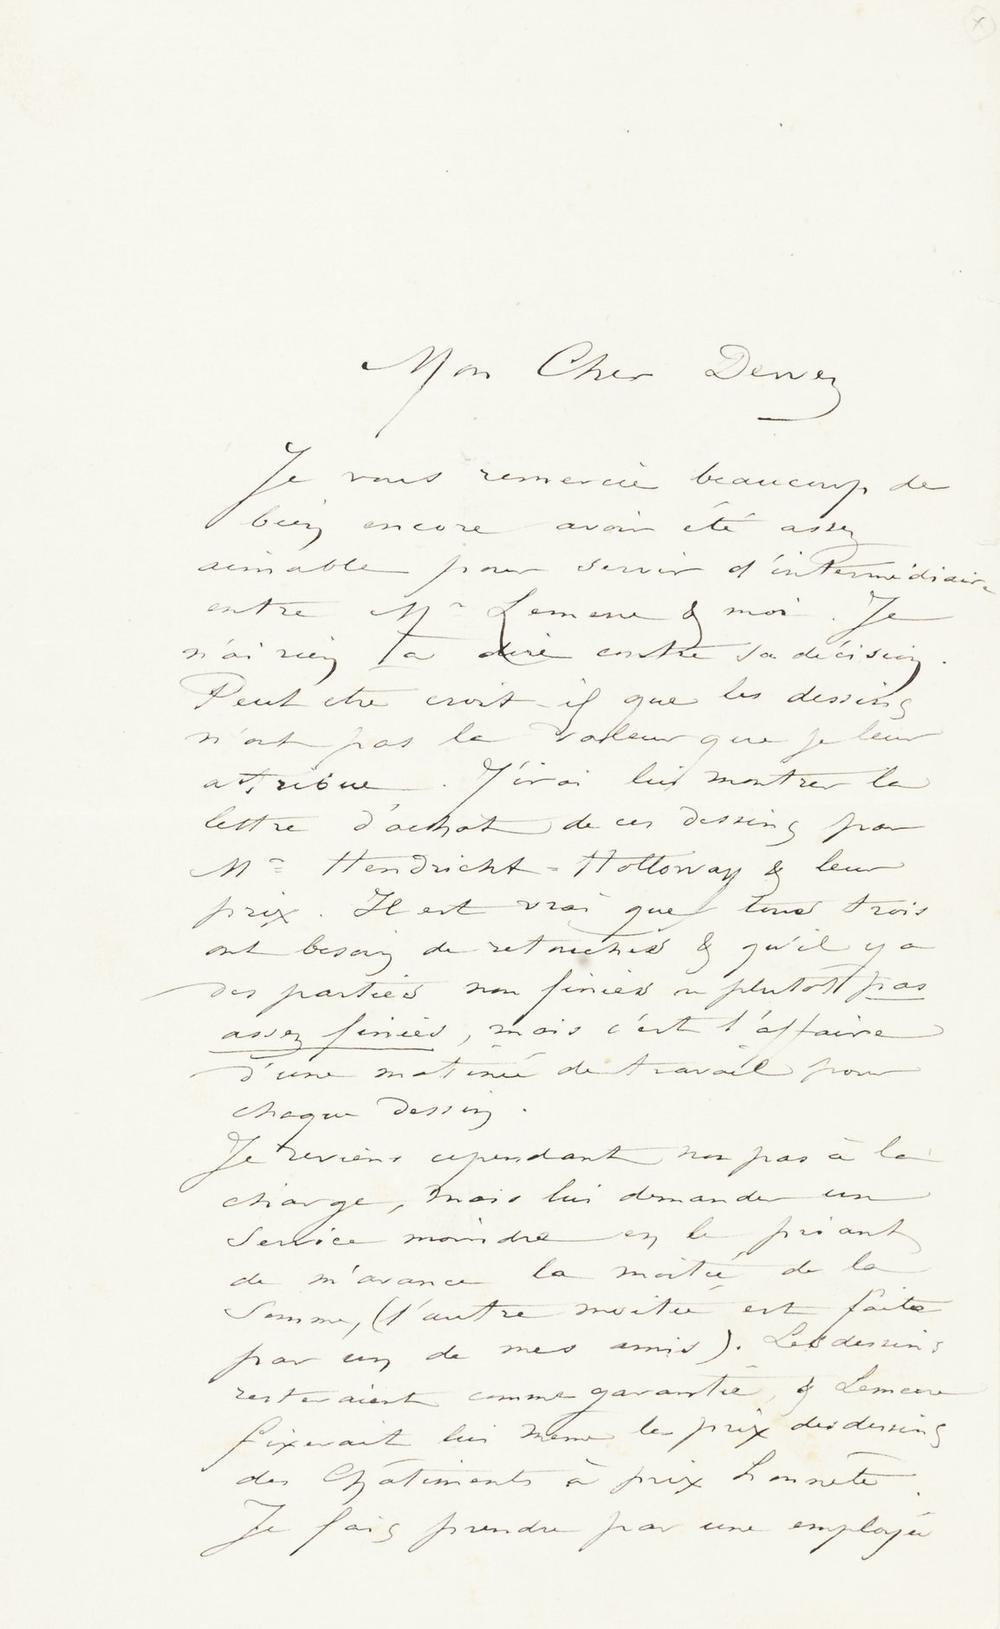 Mon Cher Deman
Je vous remercie beaucoup de
bien encore avoir été assez
aimable pour servir d'intermédiaire
entre Mr Lemerre & moi. Je
n'ai rien à dire contre sa décision.
Peut etre croit-il que les dessins
n'ont pas la valeur que je leur
attribue. J'irai lui montrer la
lettre d'achat de ces dessins par
Mr Hendricht-Holloway & leur
prix. Il est vrai que tous trois
ont besoin de retouches & qu'il y a
des parties non finies ou plutôt pas
assez finies, mais c'est l'affaire
d'une matinée de travail pour
chaque dessin.
Je reviens cependant non pas à la
charge, mais lui demander un
Service moindre en le priant
de m'avancer la moitié de la
Somme, (l'autre moitié est faite
par un de mes amis). Les dessins
resteraient comme garantie, & Lemerre
fixerait lui meme le prix des dessins
des Châtiments à prix honnête.
Je fais prendre par une employée